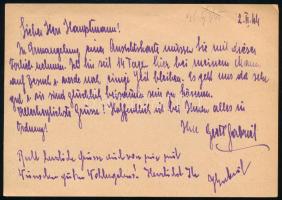 2.II.44
Lieber Herr Hauptmann!
In Ermangelung einer Ansichtskarte müssen Sie mit dieser
Vorlieb nehmen. Ich bin seit 14 Tage hier bei meinem Mann
auf Besuch u. werde noch einige Zeit bleiben. Es geht uns da sehr
gut u. wir sind glücklich beisammen sein zu können.
Allerherzlichste Grüsse! Hoffentlich ist bei Ihnen alles in
Ordnung!
Ihre Gerti
Recht herzliche Grüsse auch von mir mit
Wünschen guten Wohlergehens! Herzlichst Ihr